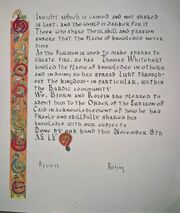 Insight which is gained and not shared
is lost, and the world is darker for it
Those who share their skill and passion
ensure that the flame of knowledge never
dims
As the Furison is used to make sparks to
create fire, so has Thomas Whitehart
kindled the flame of knowledge in others,
and in doing so has spread light through-
out the kingdom - in particular, within
the Bardic community
We, Bjorn and Roisin are pleased to
admit him to the Order of the Furison of
Caid in acknowledgement of how he has
freely and skillfully shared his
knowledge with our subjects
Done by our hand this November 8th
AS
Bjorn Roisin